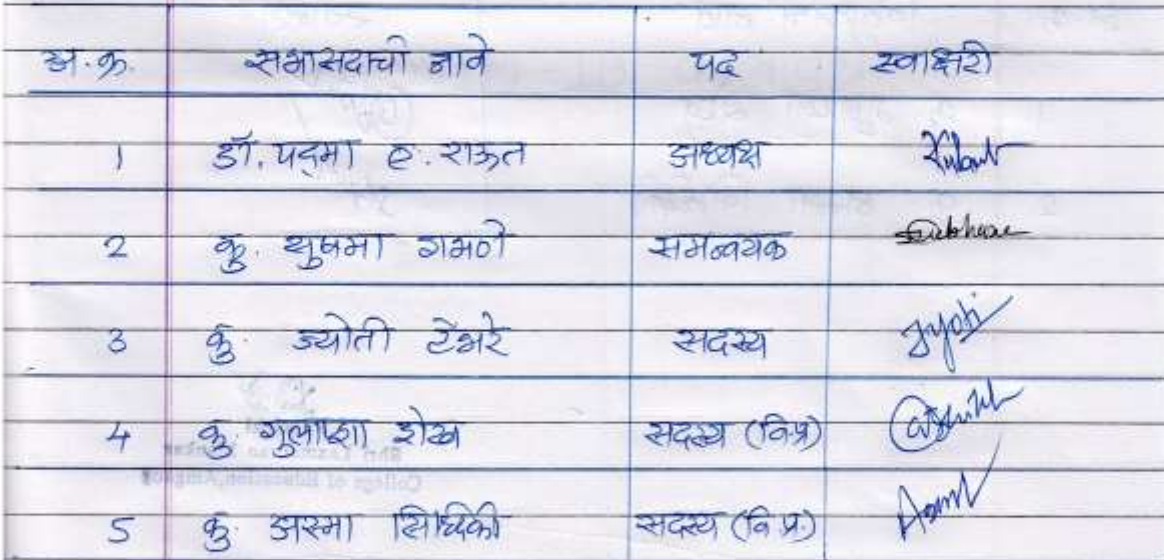 अ.क्र. सभासदाची नावे पद स्वाक्षिरी
1 डॉ. पद्मा ह. राऊत अध्यक्ष
2 कु. शुषमा गभणे समन्वयक
3 कु. ज्योती टेंभरे सदस्य Jyoti
4 कु. गुलाफ्शा शेख सदस्य (वि.प्र)
5 कु. अस्मा सिध्दिकी सदस्य (वि.प्र.)